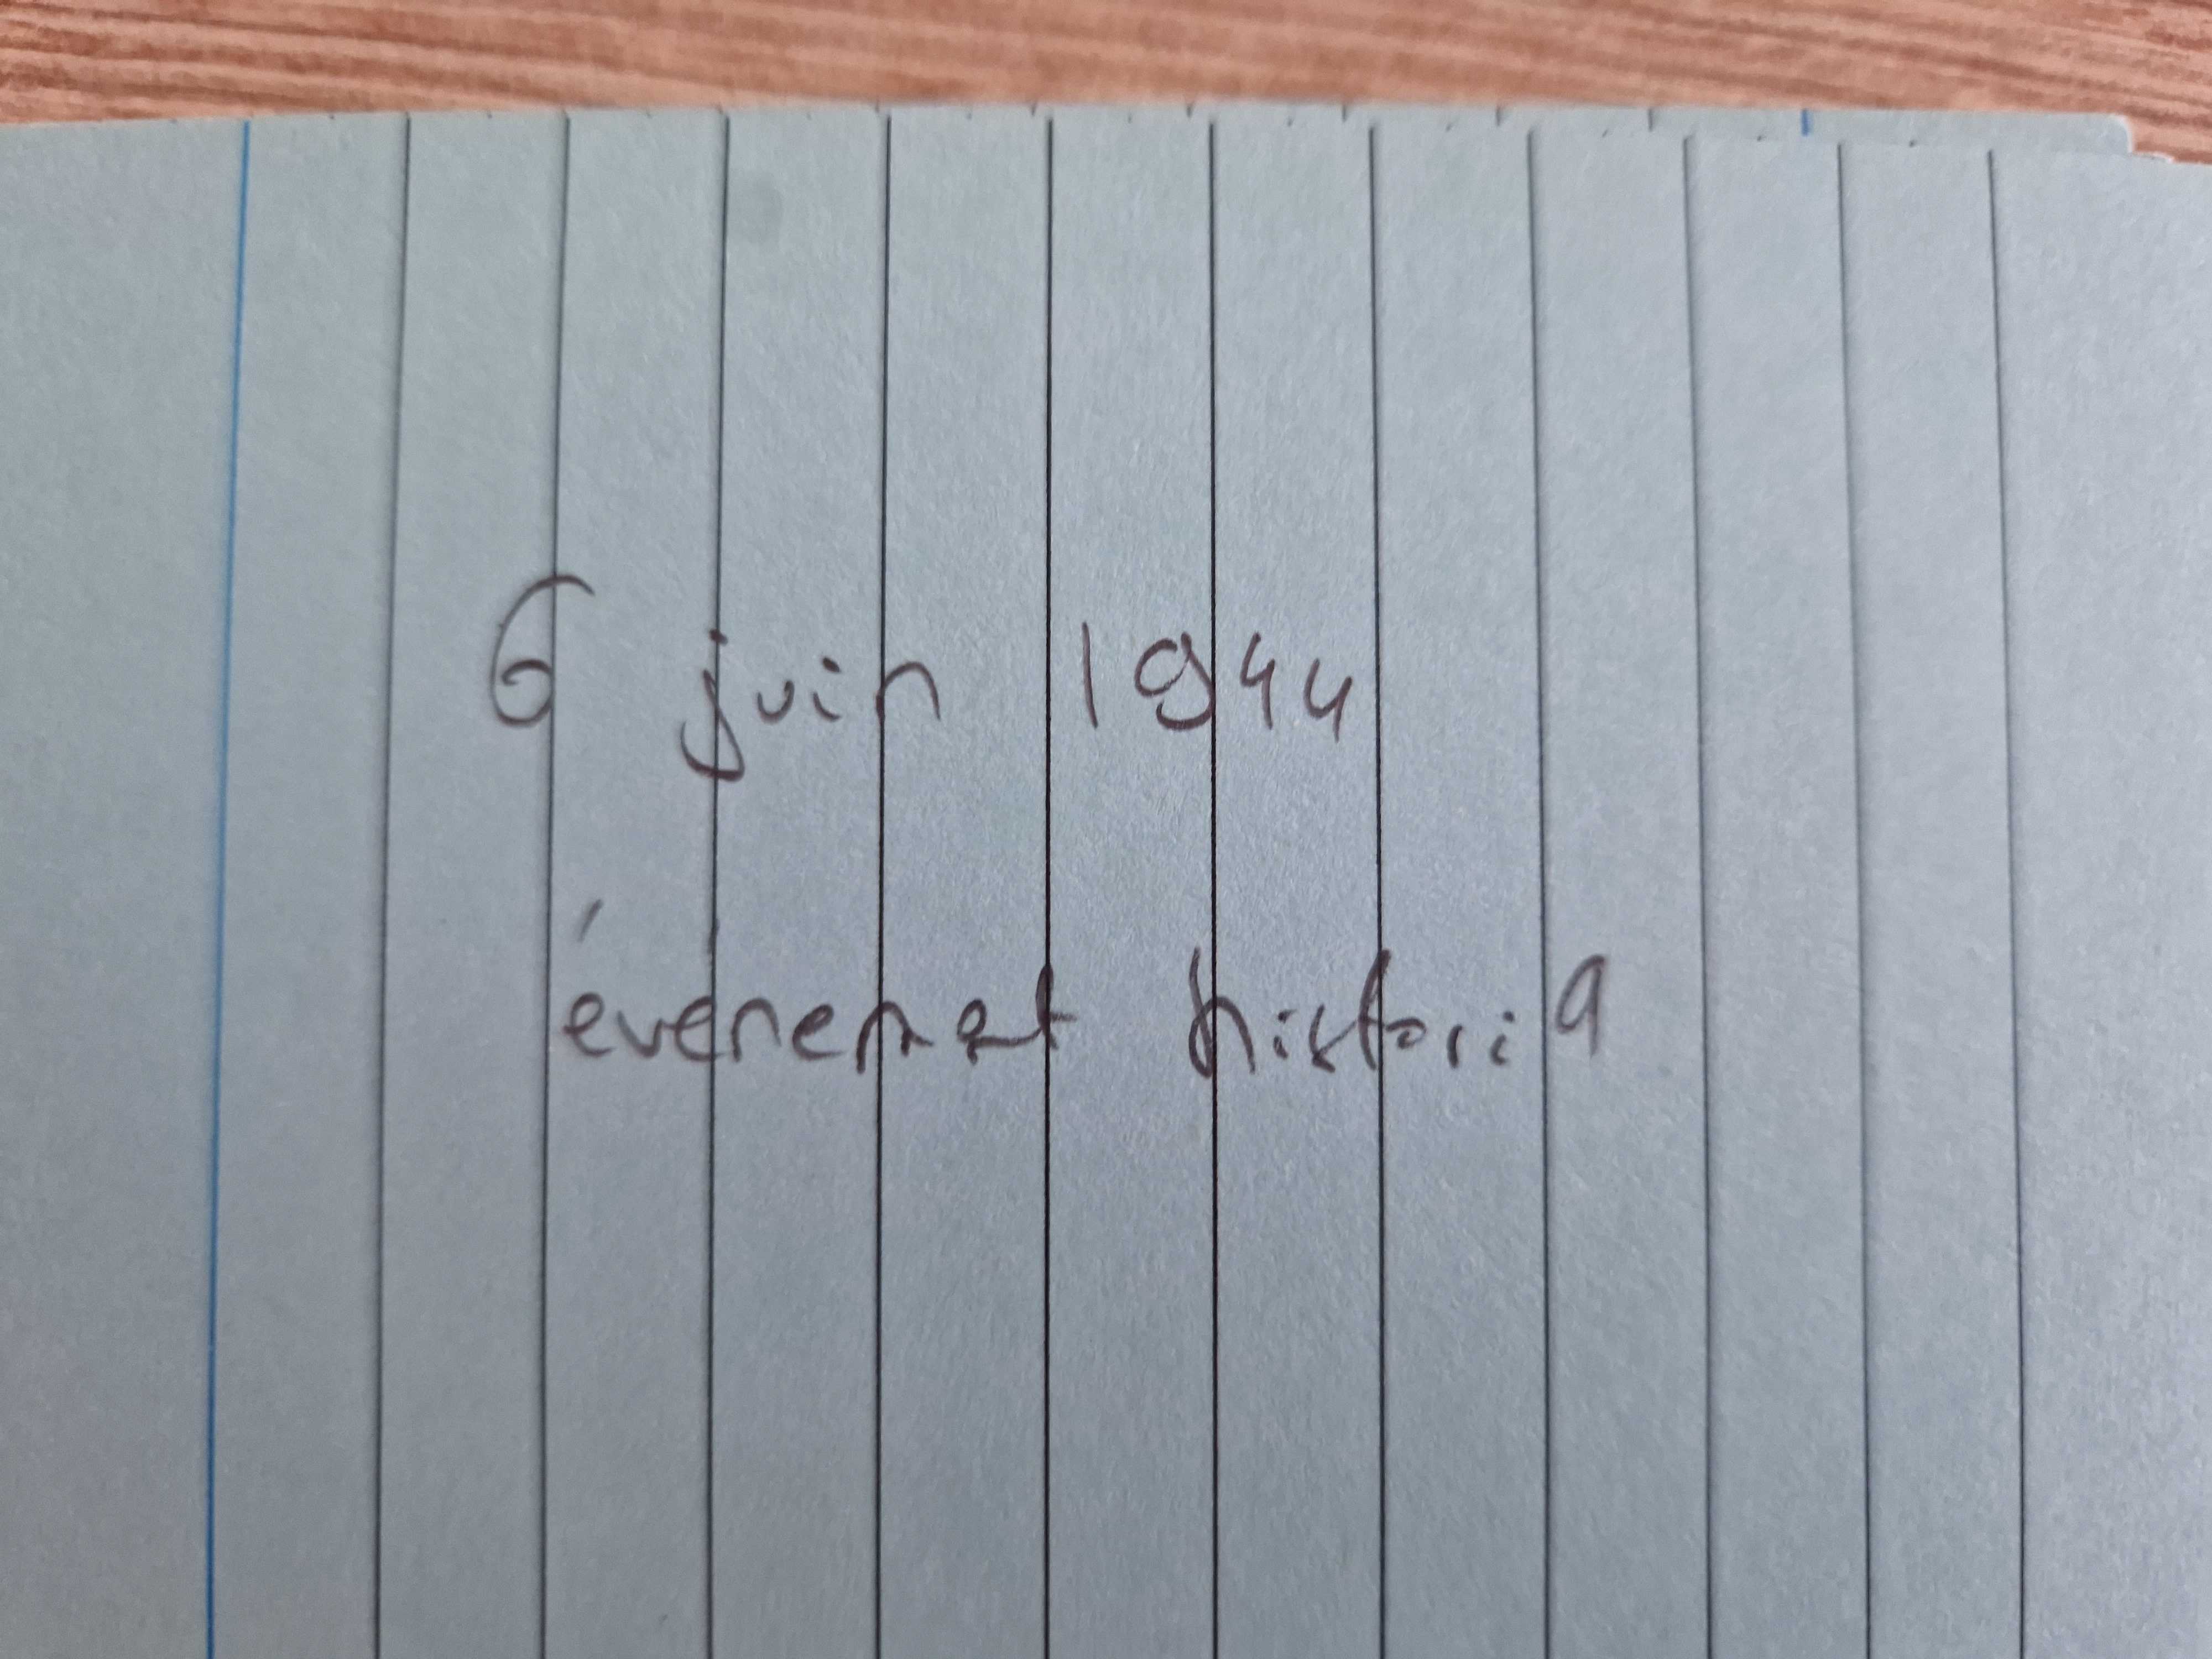 6 juin 1944
événemet histori q